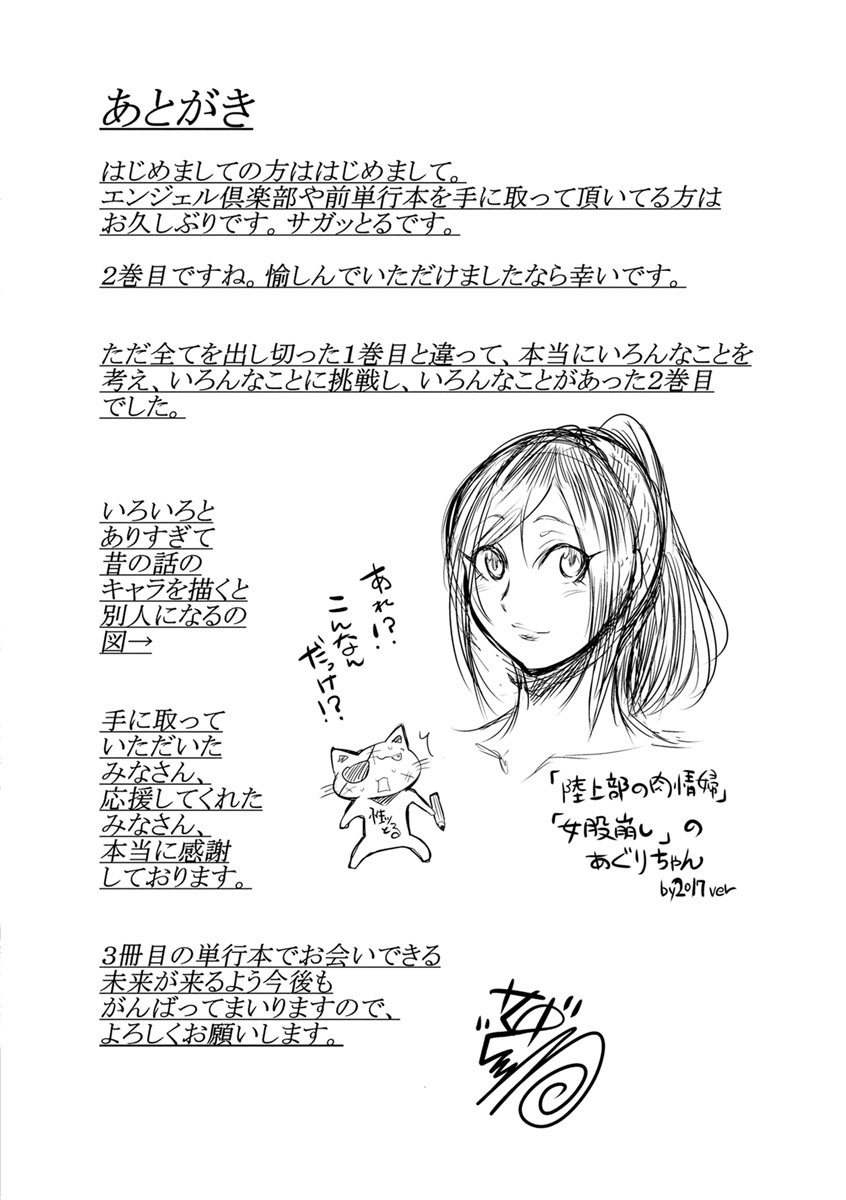 あとがき
はじめましての方ははじめまして。
エンジェル倶楽部や前単行本を手に取って頂いてる方は
お久しぶりです。サガッとるです。
2巻目ですね。愉しんでいただけましたなら幸いです。
ただ全てを出し切った1巻目と違って、本当にいろんなことを
考え、いろんなことに挑戦し、いろんなことがあった2巻目
でした。
いろいろと
ありすぎて
昔の話の
キャラを描くと
別人になるの
図→
あれ!?
こんなん
だっけ!?
性ッとる
「陸上部の肉情婦」
「女股崩し」の
あぐりちゃん
by2017ver
手に取って
いただいた
みなさん、
応援してくれた
みなさん、
本当に感謝
しております。
3冊目の単行本でお会いできる
未来が来るよう今後も
がんばってまいりますので、
よろしくお願いします。